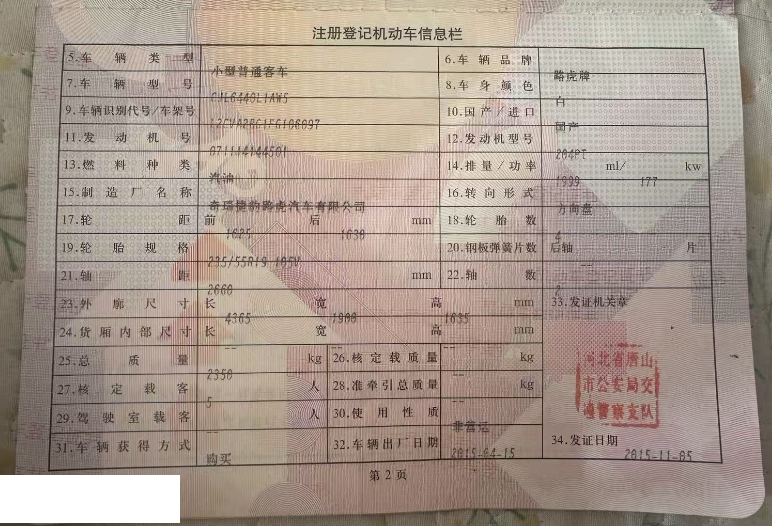 注册登记机动车信息栏
5.车辆类型 小型普通客车 6.车辆品牌 路虎牌
7.车辆型号 8.车身颜色 白
9.车辆识别代号/车架号 10.国产/进口 国产
11.发动机号 12.发动机型号 204PT
13.燃料种类 汽油 14.排量/功率 1999 ml/ 177 kw
15.制造厂名称 奇瑞捷豹路虎汽车有限公司 16.转向形式 方向盘
17.轮距 前 1625 后 1630 mm 18.轮胎数 4
19.轮胎规格 235/55R19 105V 20.钢板弹簧片数 后轴 -- 片
21.轴距 2660 mm 22.轴数 2
23.外廓尺寸 长 4365 宽 1900 高 1635 mm 33.发证机关章
24.货厢内部尺寸 长 -- 宽 -- 高 -- mm
25.总质量 2350 kg 26.核定载质量 -- kg
27.核定载客 5 人 28.准牵引总质量 -- kg
29.驾驶室载客 -- 人 30.使用性质 非营运
31.车辆获得方式 购买 32.车辆出厂日期 2015-04-15
河北省唐山
市公安局交
通警察支队
34.发证日期 2015-11-05
第2页